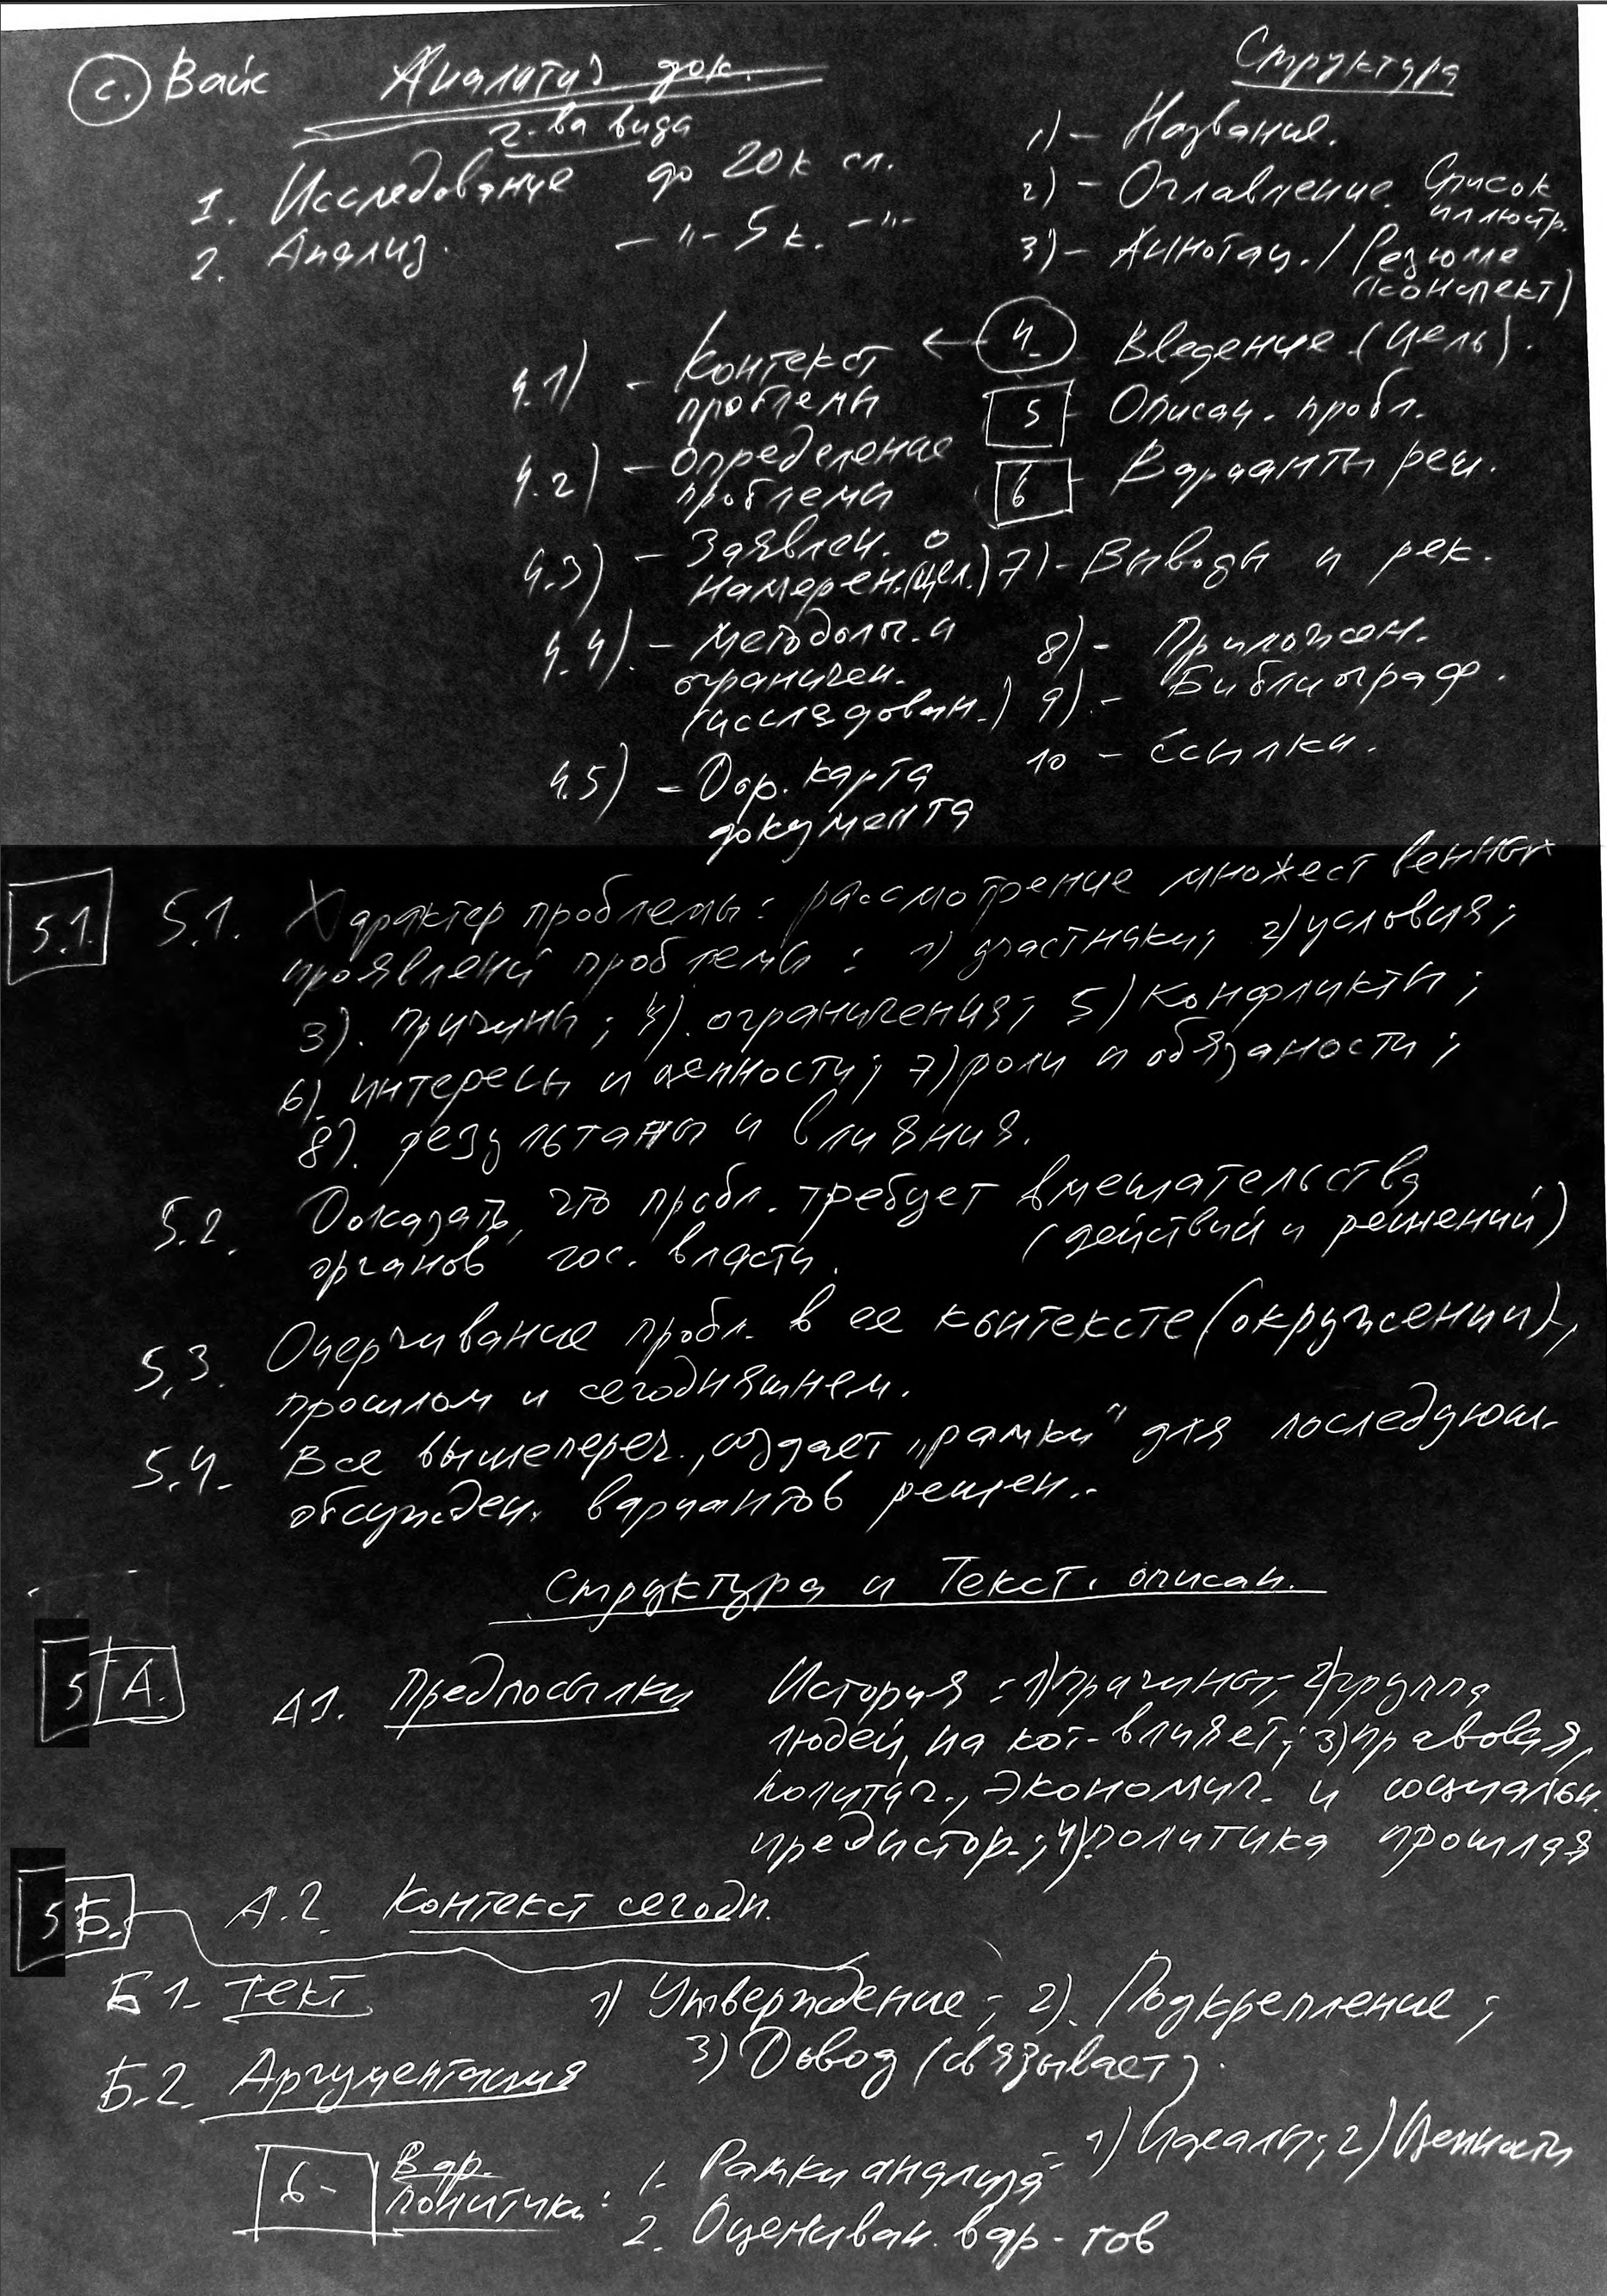 с. Вайс
Аналитич док.
2-ва вида
1. Исследование до 20к сл.
2. Анализ. – " – 5 к. – " –
Структура
1) – Название.
2) – Оглавление. Список иллюстр.
3) – Аннотац. / Резюме (конспект)
4. Введение (цель).
5 – Описан. пробл.
6 – Варианты реш.
7) – Выводы и рек.
8) – Приложен.
9) – Библиограф.
10 – Ссылки.
4.1) – Контекст
проблемы
4.2) – Определение
проблемы
4.3) – Заявлен. о
намерен. (цел.)
4.4) – Методолог. и
ограничен.
(исследован.)
4.5) – Дор. карта
документа
5.1. 5.1. Характер проблемы: рассмотрение множественных
проявлений проблемы: 1) участники; 2) условия;
3). причины; 4). ограничения; 5) конфликты;
6). интересы и ценности; 7) роли и обязаности;
8). результаты и влияния.
5.2. Доказать, что пробл. требует вмешательства
органов гос. власти. (действий и решений)
5.3. Очерчивание пробл. в ее контексте (окружении),
прошлом и сегодняшнем.
5.4. Все вышепереч., создает „рамки" для последующ.
обсужден. вариантов решен..
Структура и Текст. описан.
5 А. А1. Предпосылки История: 1) причины; 2) группа
людей, на кот. влияет; 3) правовая,
политич., экономич. и социальн.
предистор.; 4) политика прошлая
5 Б. А.2. Контекст сегодн.
Б1. Текст 1) Утверждение; 2). Подкрепление;
Б.2. Аргументация 3) Довод (связывает).
6 - Вар.
политики: 1. Рамки анализа – 1) Идеалы; 2) Ценности
2. Оцениван. вар-тов